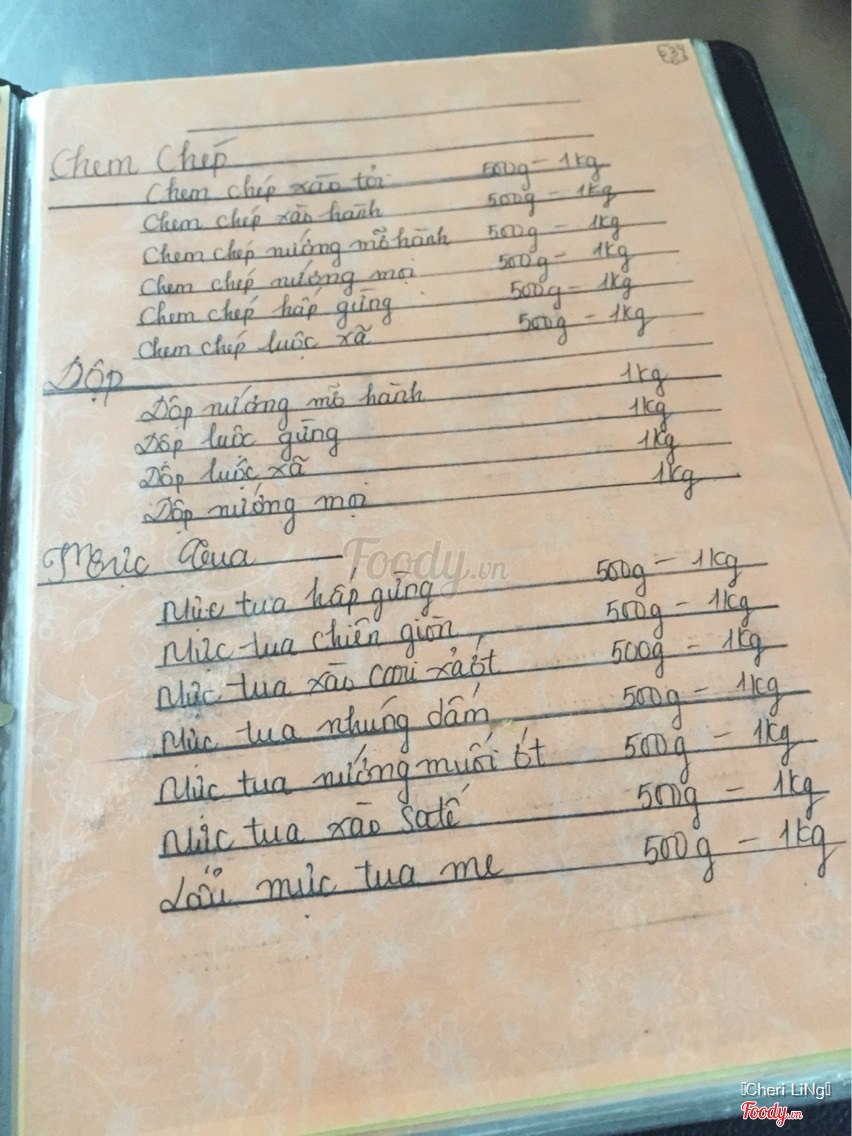 Chem Chép
Chem chép xào tỏi 500g - 1kg
Chem chép xào hành 500g - 1kg
Chem chép nướng mỡ hành 500g - 1kg
Chem chép nướng mọi 500g - 1kg
Chem chép hấp gừng 500g - 1kg
Chem chép luộc xã 500g - 1kg
Dộp
Dộp nướng mỡ hành 1kg
Dộp luộc gừng 1kg
Dộp luộc xã 1kg
Dộp nướng mọi 1kg
Mực Tua
Mực tua hấp gừng 500g - 1kg
Mực tua chiên giòn 500g - 1kg
Mực tua xào cari xả ớt 500g - 1kg
Mực tua nhúng dấm 500g - 1kg
Mực tua nướng muối ớt 500g - 1kg
Mực tua xào satế 500g - 1kg
Lẩu mực tua me 500g - 1kg
Foody.vn
Cheri LiNg
Foody.vn